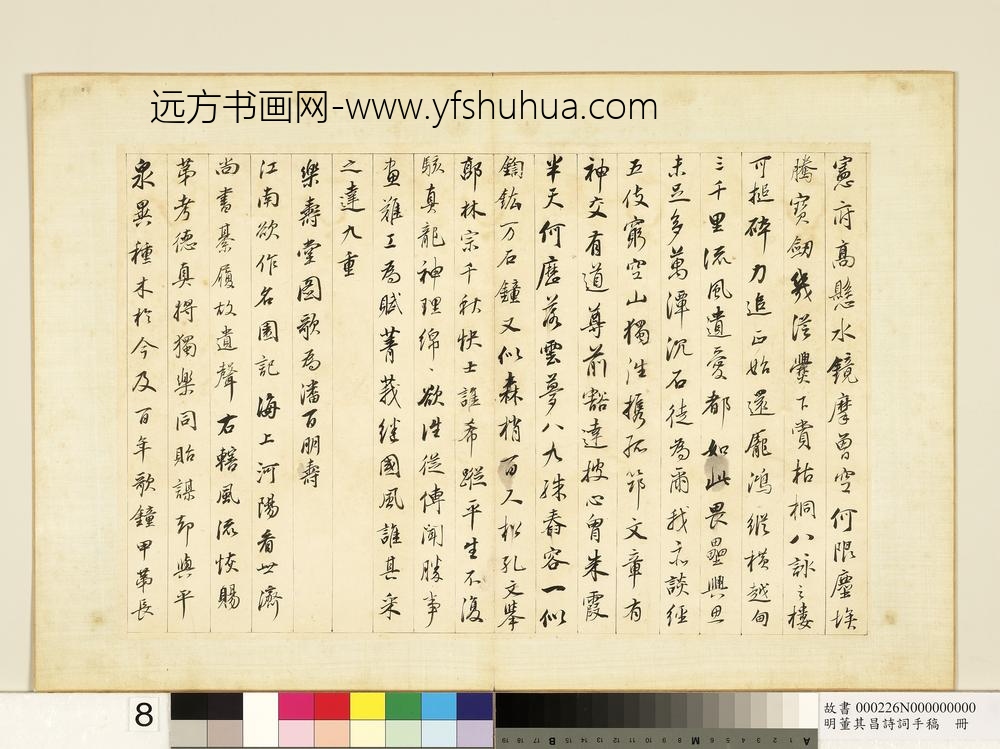 远方书画网-www.yfshuhua.com
憲府高懸水鏡摩曾空何限塵埃
騰寶劒幾從爨下賞枯桐八詠之樓
可搥碎力追正始還龐鴻縱橫越甸
三千里流風遺愛都如此畏壘興思
未足多萬潭沉石徒為爾我亦談經
五伎窮空山獨往携孤筇文章有
神交有道尊前豁達披心胷朱霞
半天何磨落雲夢八九殊舂容一似
鍧鈜万石鐘又似森梢百人松孔文舉
郭林宗千秋快士誰希蹤平生不復
駭真龍神理綿、欲往從傳聞勝事
畫難工為賦菁莪繼國風誰其采
之達九重
樂壽堂圖歌為潘百朋壽
江南欲作名園記海上河陽看世濟
尚書綦履故遺聲右轄風流恢賜
第考德真將獨樂同貽謀却與平
泉異種木於今及百年歌鐘甲第長
8
故書 000226N000000000
明董其昌詩詞手稿 冊